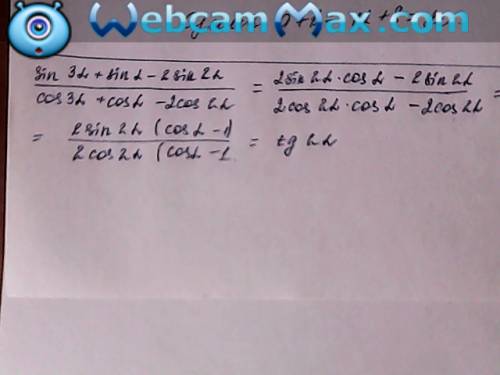 WebcamMax.com
(sin 3α + sin α - 2 sin 2α) / (cos 3α + cos α - 2cos 2α) = (2 sin 2α · cos α - 2 sin 2α) / (2 cos 2α · cos α - 2 cos 2α) =
= (2 sin 2α (cos α - 1)) / (2 cos 2α (cos α - 1) = tg 2α